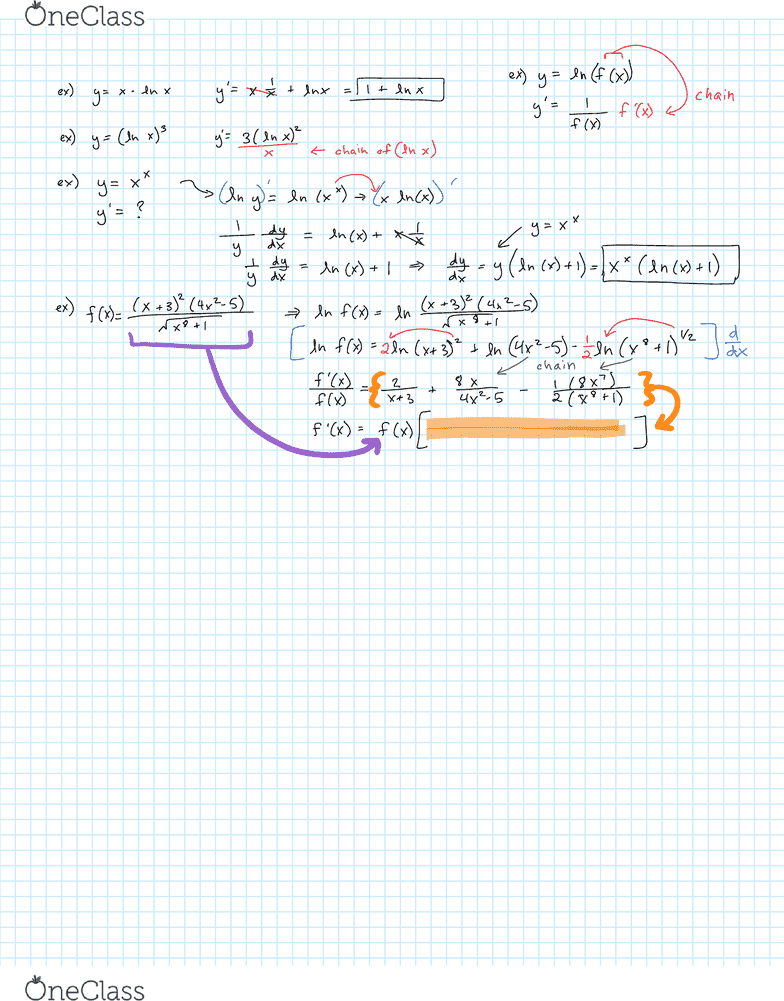 OneClass
ex) y = x · ln x    y' = x 1/x + lnx = 1 + ln x
ex) y = ln(f(x))
y' = 1/f(x) f'(x) chain
ex) y = (ln x)³    y' = 3(ln x)²/x ← chain of (ln x)
ex) y = xˣ → (ln y)' = ln(xˣ) → (x ln(x))'
y' = ?
1/y dy/dx = ln(x) + x 1/x
y = xˣ
1/y dy/dx = ln(x) + 1 ⇒ dy/dx = y(ln(x)+1) = xˣ(ln(x)+1)
ex) f(x) = (x+3)²(4x²-5)/√x⁸+1 ⇒ ln f(x) = ln (x+3)²(4x²-5)/√x⁸+1
[ln f(x) = 2ln(x+3)² + ln(4x²-5) - 1/2 ln(x⁸+1)^1/2] d/dx
chain
f'(x)/f(x) = {2/x+3 + 8x/4x²-5 - 1(8x⁷)/2(x⁸+1)}
f'(x) = f(x)[ ]
OneClass